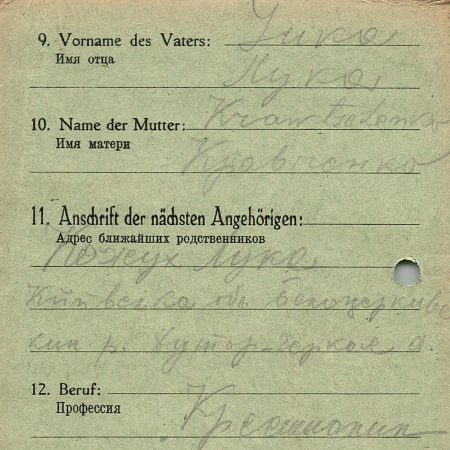 9. Vorname des Vaters:
Имя отца
Лука
10. Name der Mutter: Krawtschenko
Имя матери
Кравченко
11. Anschrift der nächsten Angehörigen:
Адрес ближайших родственников
Кожух Лука
обл.
р.
12. Beruf:
Профессия
Крестианин